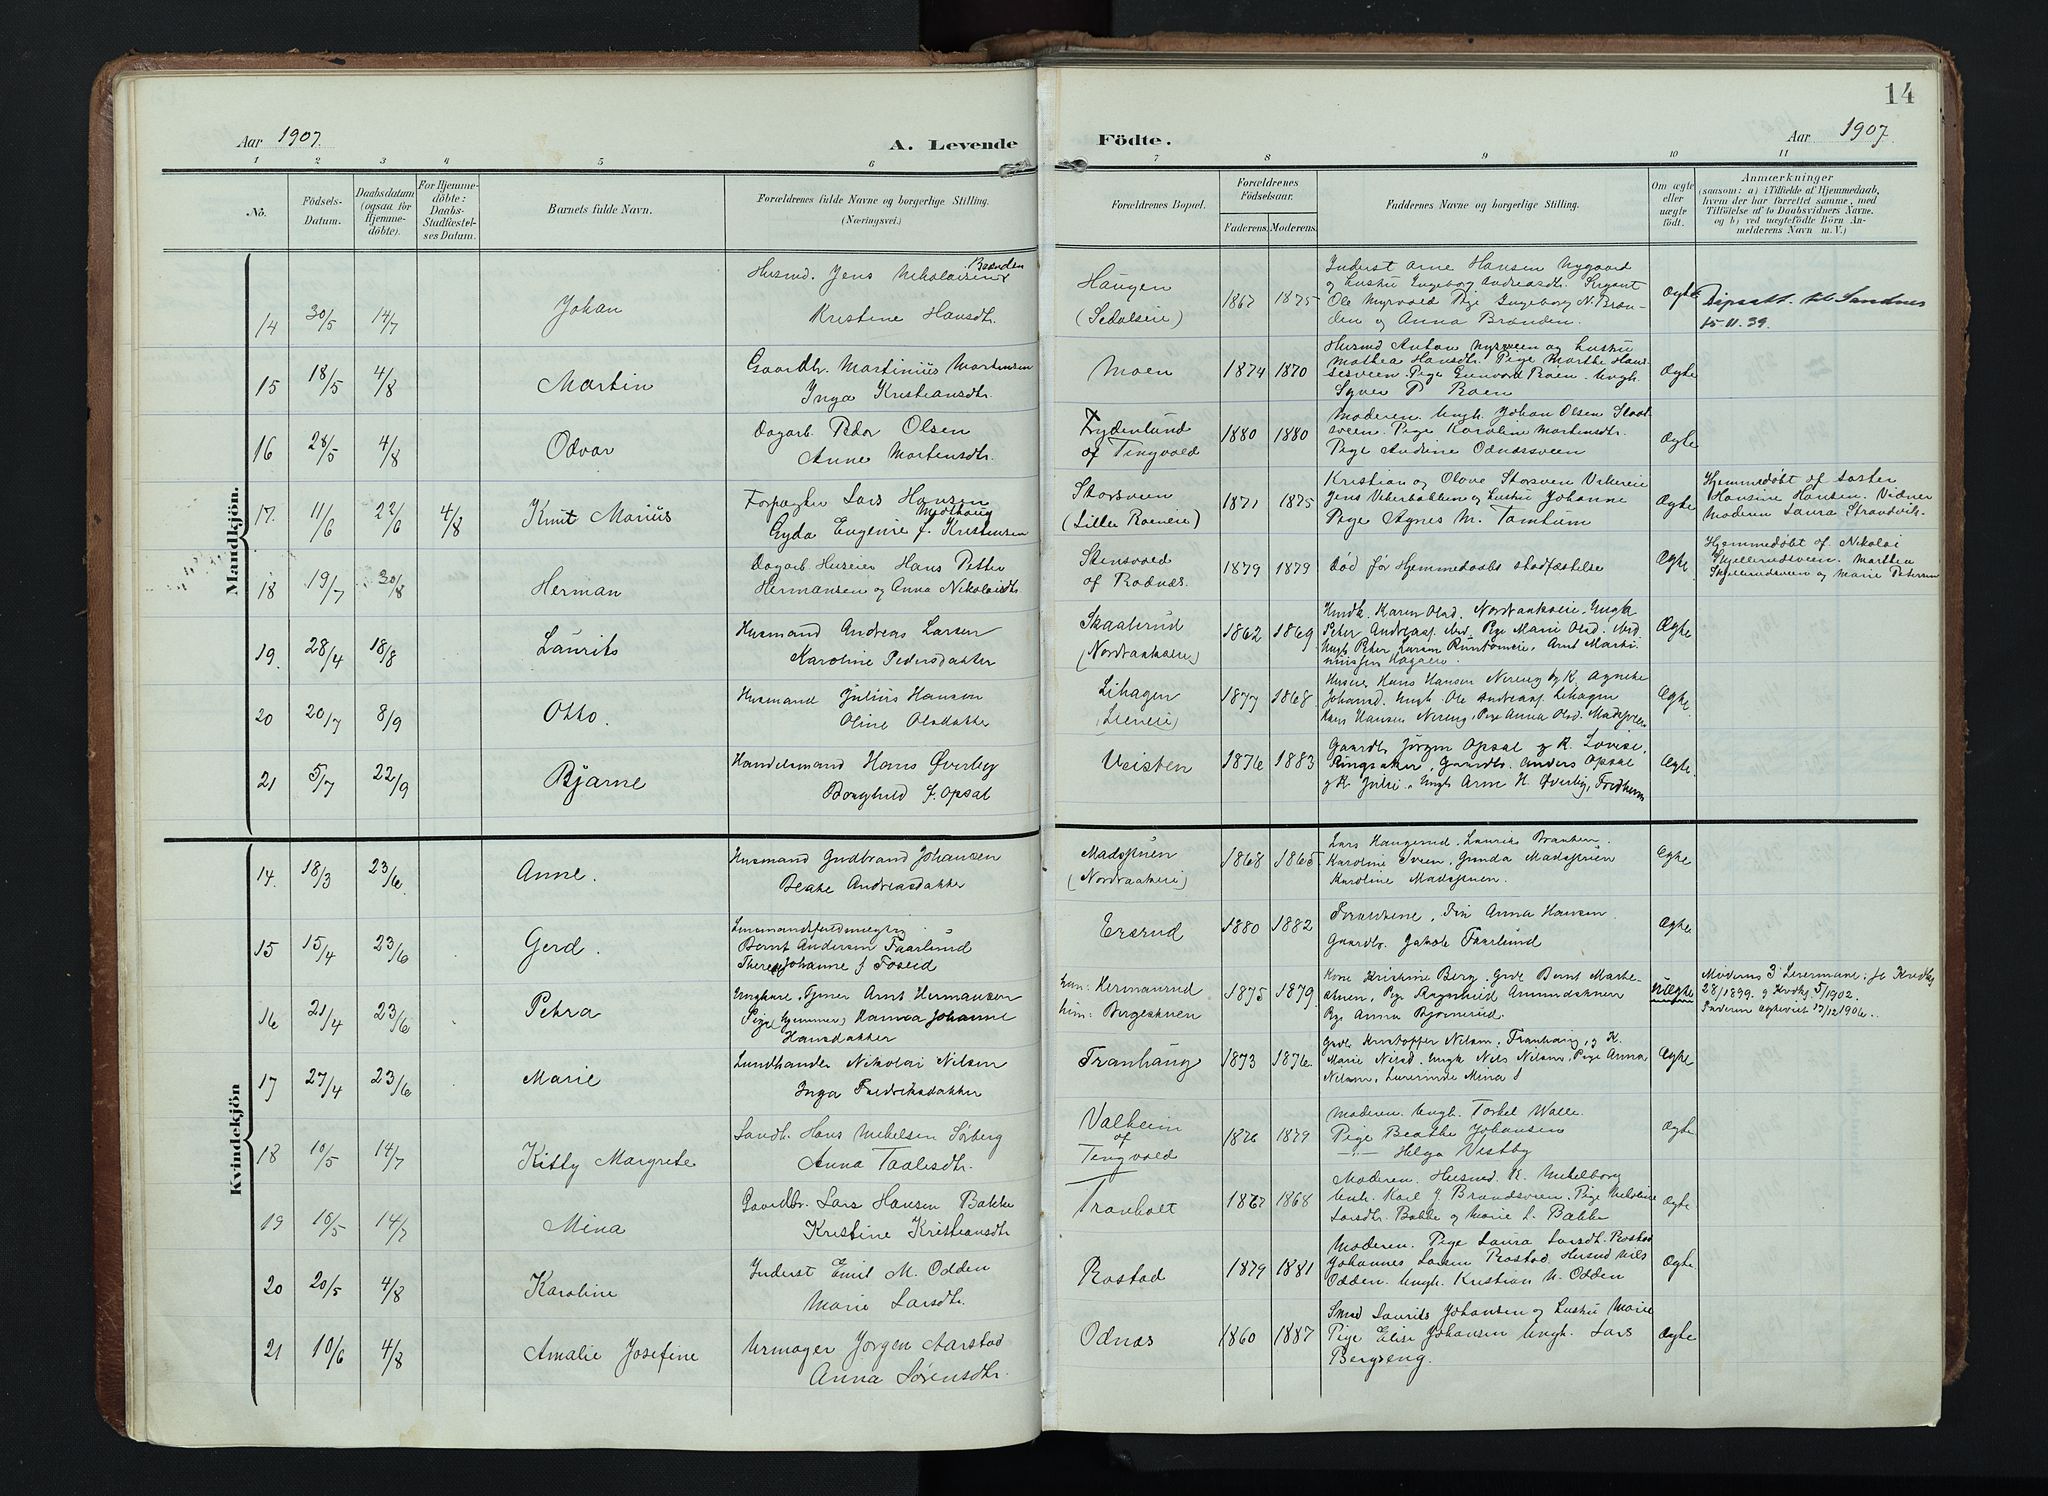 14
Aar 1907.
A. Levende
Födte.
Aar 1907.
1 2 3 4 5 6 7 8 9 10 11
No.
Födsels-
Datum.
Daabsdatum
(ogsaa for
Hjemme-
döbte).
For Hjemme-
döbte:
Daabs-
Stadfæstel-
ses Datum.
Barnets fulde Navn.
Forældrenes fulde Navne og borgerlige Stilling.
(Næringsvei.)
Forældrenes Bopæl.
Forældrenes
Födselsaar.
Faderens. Moderens.
Faddernes Navne og borgerlige Stilling.
Om ægte
eller
uægte
födt.
Anmærkninger
(saasom: a) i Tilfælde af Hjemmedaab,
hvem der har forrettet samme, med
Tilföielse af to Daabsvidners Navne.
og b) ved uægtefödte Börn An-
melderens Navn m. V.)
Mandkjön.
14 30/5 14/7 Johan
Husmd. Jens Nikolaisen Brænden
Kristine Hansdtr.
Haugen
1867 1875
Inderst Arne Hansen Nygaard
Ole Myrvold Pige Ingeborg N. Bræn-
den og Anna Brænden.
Ægte
Sandnes
15-11.39.
15 18/5 4/8 Martin
Gaardbr. Martinius Martensen
Inga Kristiansdtr.
Moen
1874 1870
Husmd Anton Nysveen og hustru
Mathea Hansdtr. Pige Marthe Hans-
Syver P Roen
Ægte
16 28/5 4/8 Odvar
Dagarb. Peder Olsen
Anne Martensdtr.
Frydenlund
af Tingvold
1880 1880
Moderen. Ungk. Johan Olsen Sloot
sveen. Pige Karoline Martensdtr.
Pige Andrine Odnæssveen
Ægte
17. 11/6 22/6 4/8 Knut Marius
Forpagter Lars Hansen
Medhaug
Gyda Eugenie f. Kristensen
Storsveen
(Lille Roeneie)
1871 1875
Kristian og Olava Storsveen
Pige Agnes M. Tomlum
Ægte
Hjemmedøbt af Søster
Hansine Hansen. Vidner
Moderen Laura Strandvik.
18 19/7 30/8 Herman
Dagarb. Huseier Hans Petter
Hermansen og Anna Nikolaisdtr.
Stensveed
af Rodnæs.
1879 1879
død før Hjemmedaabs stadfæstelse
Ægte
Hjemmedøbt af Nikolai
Skjellerudsveen. Marthea
Skjellerudsveen og Marie Petersen
19. 28/4 18/8 Laurits
Husmand Andreas Larsen
Karoline Pedersdatter
Skaalerud
(Nordraakseie)
1862 1869
Ægte
20 20/7 8/9 Otto.
Husmand Julius Hansen
Oline Olsdatter
Lihagen
(Lieneie)
1877 1868
Hans Hansen Nereng, Pige Anna Olsd. Madspuen
Ægte.
21 5/7 22/9 Bjarne
Handelsmand Hans Øverby
Borghild f. Opsal
Veisten
1876 1883
Gaardb. Jørgen Opsal og K. Lovise,
Ringsaker, Gaardb. Anders Opsal
og K. Julie. Ungk Arne H. Øverby, Fredheim
Ægte.
Kvindekjön
14. 18/3 23/6. Anne.
Husmand Gudbrand Johansen
Beate Andreasdatter
Madspuen
(Nordraakseie)
1868 1865.
Karoline Sveen, Gunda Madspuen
Karoline Madspuen.
Ægte
15 15/4 23/6 Gerd.
Lensmandsfuldmægtig
Bernt Andersen Faarlund
Therese Johanne f Foseid
Ersrud
1880 1882
Forældrene, Frk Anna Hansen.
Gaardbr. Jakob Faarlund
Ægte
16 21/4 23/6 Petra
Ungkare, Tjener Arnt Hermansen
Pige (hjemmev) Hanna Johanne
Hansdatter
ham: Hermanrud
hun: Bergespuen
1875 1879
Kone Kristine Berg, Grdb Bernt Marte-
Pige Anna Bjørnerud.
Uægte
Moderens 3' Leiermaal; jf Kvdk
28/1899. og Kvdkj. 5/1902.
Faderen ægteviet 17/12 1906.
17 27/4 23/6 Marie
Lundhander Nikolai Nilsen
Inga Fredriksdatter
Tranhaug
1873 1876.
Grdb Kristoffer Nilsen, Tranhaug, og K.
Marie Nilsd. Ungk Nils Nilsen, Pige Anna
Ægte
18 10/5 14/7 Kitty Margrete
Landh. Hans Mikelsen Sørberg
Anna Taalesdtr.
Valheim
af
Tingvold
1876 1879
Moderen. Ungk. Torkel Walle.
Pige Beathe Johansen
—"— Helga Vestby
Ægte
19 16/5 14/7 Mina
Gaardbr. Lars Hansen Bakke
Kristine Kristiansdtr
Tranholt
1867 1868
Ungk. Karl J. Brandsveen. Pige
Larsdtr. Bakke og Marie L. Bakke
Ægte
20 20/5 4/8 Karoline
Inderst Emil M. Odden
Marie Larsdtr.
Rostad
1879 1881
Moderen. Pige Laura Larsdtr. Rostad
Johannes Larsen Rostad. Husmd Nils
Odden. Ungk. Kristian M. Odden
Ægte
21 10/6 4/8 Amalie Josefine
Urmager Jørgen Aarstad
Anna Sørensdtr.
Odnæs
1860 1887
Smed Laurits Johansen og hustru Marie
Pige Elise Johansen Ungk. Lars
Bergseng.
Ægte